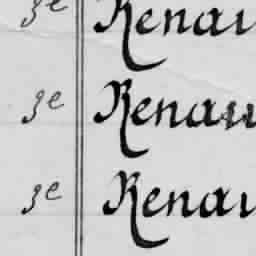 3e Renau
3e Renau
3e Renau